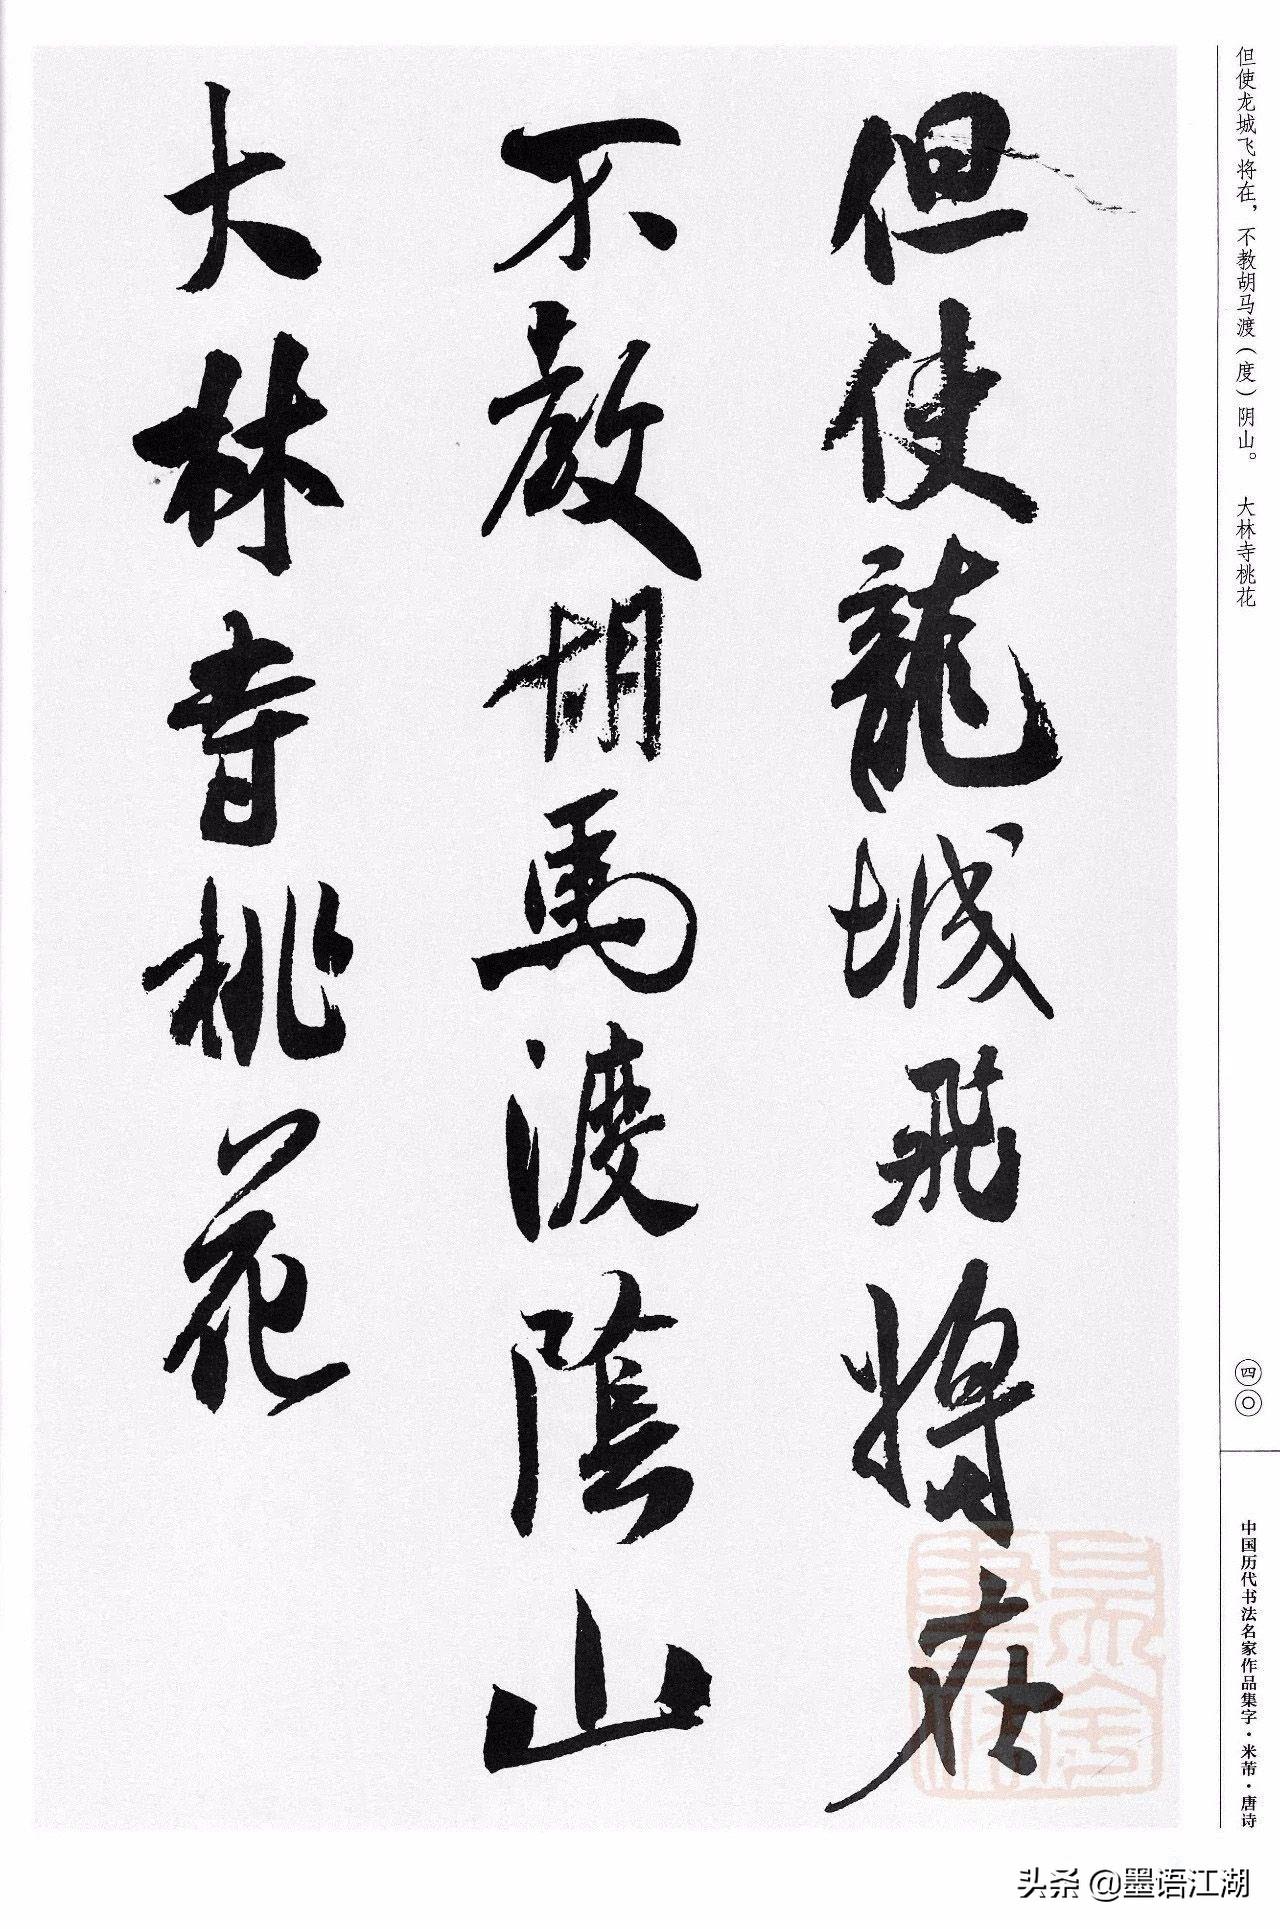 但使龍城飛將在
不教胡馬渡陰山
大林寺桃花
但使龙城飞将在，不教胡马渡（度）阴山。 大林寺桃花
四〇
中国历代书法名家作品集字·米芾·唐诗
头条 @墨语江湖